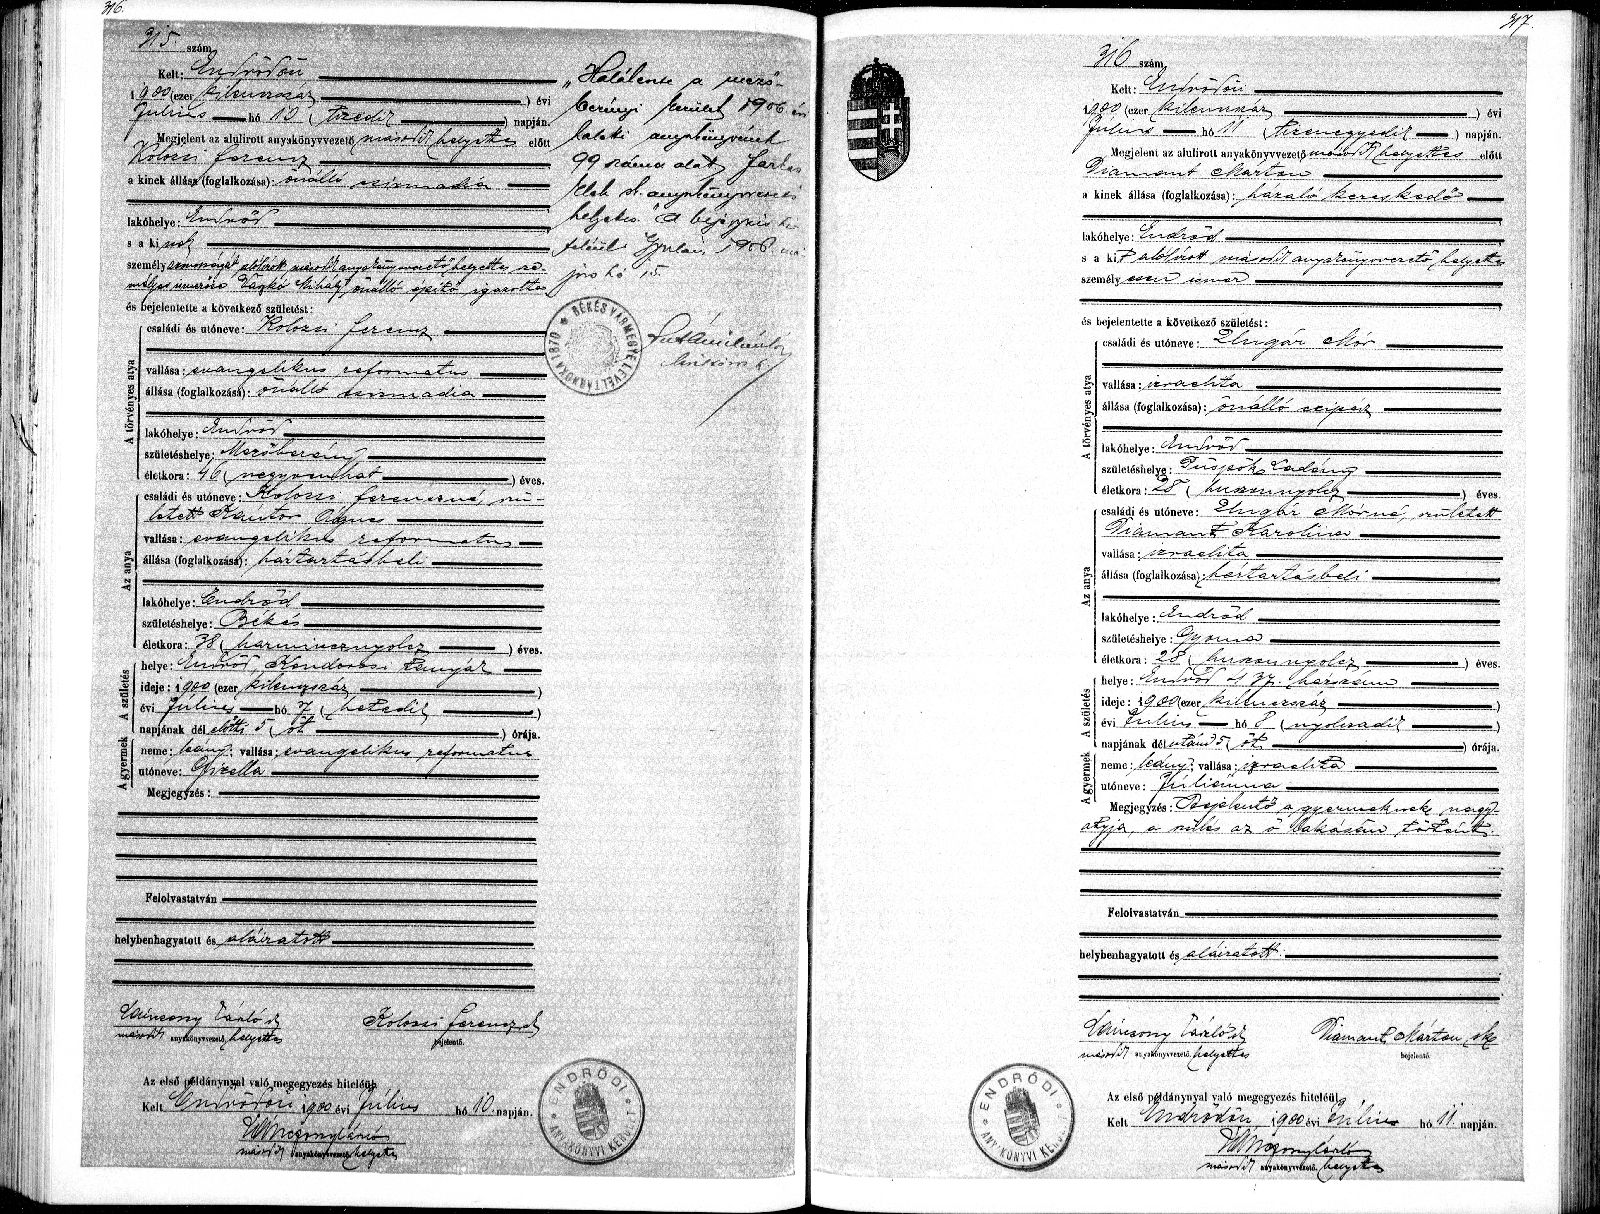 316
315 szám
Kelt: Endrődön
1900 (ezer kilenczáz) évi
Július hó 10 (tizedik) napján.
Megjelent az alulirott anyakönyvvezető másodk helyettes előtt
Kolozsi Ferencz
a kinek állása (foglalkozása): önálló csizmadia
lakóhelye: Endrőd
s a ki nek
személyazonosságát alólirott másodk anyakönyvvezető helyettes sze-
mélyes ismerőse Mihály önálló építő igazolta
és bejelentette a következő születést:
A törvényes atya
családi és utóneve: Kolozsi Ferencz
vallása: evangelikus reformatus
állása (foglalkozása): önálló csizmadia
lakóhelye: Endrőd
születéshelye: Mezőberény
életkora: 46 (negyvenhat) éves.
Az anya
családi és utóneve: Kolozsi Ferenczné, szü-
letett Kántor Ágnes
vallása: evangelikus reformatus
állása (foglalkozása): háztartásbeli
lakóhelye: Endrőd
születéshelye: Békés
életkora: 38 (harmincznyolcz) éves.
A születés
helye: Endrőd, Kondorosi tanyák
ideje: 1900 (ezer kilenczszáz)
évi Július hó 7 (hetedik)
napjának dél előtti 5 (öt) órája.
A gyermek
neme: leány; vallása: evangelikus reformatus
utóneve: Gizella
Megjegyzés:
Felolvastatván
helybenhagyatott és aláiratott
másodk anyakönyvvezető helyettes
Kolozsi Ferencz sk
bejelentő.
Az első példánynyal való megegyezés hiteléül
Kelt Endrődön 1900 évi Július hó 10. napján.
másodk anyakönyvvezető helyettes
ENDRŐDI ANYAKÖNYVI KERÜLET
„Halálesete a mező-
berényi kerület 1906 évi
halotti anyakönyvének
99 száma alatt Farkas
anyakönyvvezető
helyettes." A bejegyzés hi-
teléül Gyulán, 1906 má-
jus hó 15.
BÉKÉS VÁRMEGYE LEVÉLTÁRNOKA 1870
317.
316 szám
Kelt: Endrődön
1900 (ezer kilenczáz) évi
Július hó 11 (tizenegyedik) napján.
Megjelent az alulirott anyakönyvvezető másodk helyettes előtt
Diamant Márton
a kinek állása (foglalkozása): házaló kereskedő
lakóhelye: Endrőd
s a kit alólirott másodk anyakönyvvezető helyettes
személyesen ismer
és bejelentette a következő születést:
A törvényes atya
családi és utóneve: Ungár Mór
vallása: izraelita
állása (foglalkozása): önálló czipész
lakóhelye: Endrőd
születéshelye: Püspök Ladány
életkora: 28 (huszonnyolcz) éves.
Az anya
családi és utóneve: Ungár Mórné, született
Diamant Karolina
vallása: izraelita
állása (foglalkozása): háztartásbeli
lakóhelye: Endrőd
születéshelye: Gyoma
életkora: 28 (huszonnyolcz) éves.
A születés
helye: Endrőd 37. házszám
ideje: 1900 (ezer kilenczszáz)
évi Július hó 8 (nyolczadik)
napjának dél utáni 5 (öt) órája.
A gyermek
neme: leány; vallása: izraelita
utóneve: Júliánna
Megjegyzés: Bejelentő a gyermeknek nagy-
atyja, a szülés az ő lakásán történt.
Felolvastatván
helybenhagyatott és aláiratott
másodk anyakönyvvezető helyettes
Diamant Márton sk
bejelentő
Az első példánynyal való megegyezés hiteléül
Kelt Endrődön 1900 évi Július hó 11 napján.
másodk anyakönyvvezető helyettes
ENDRŐDI ANYAKÖNYVI KERÜLET